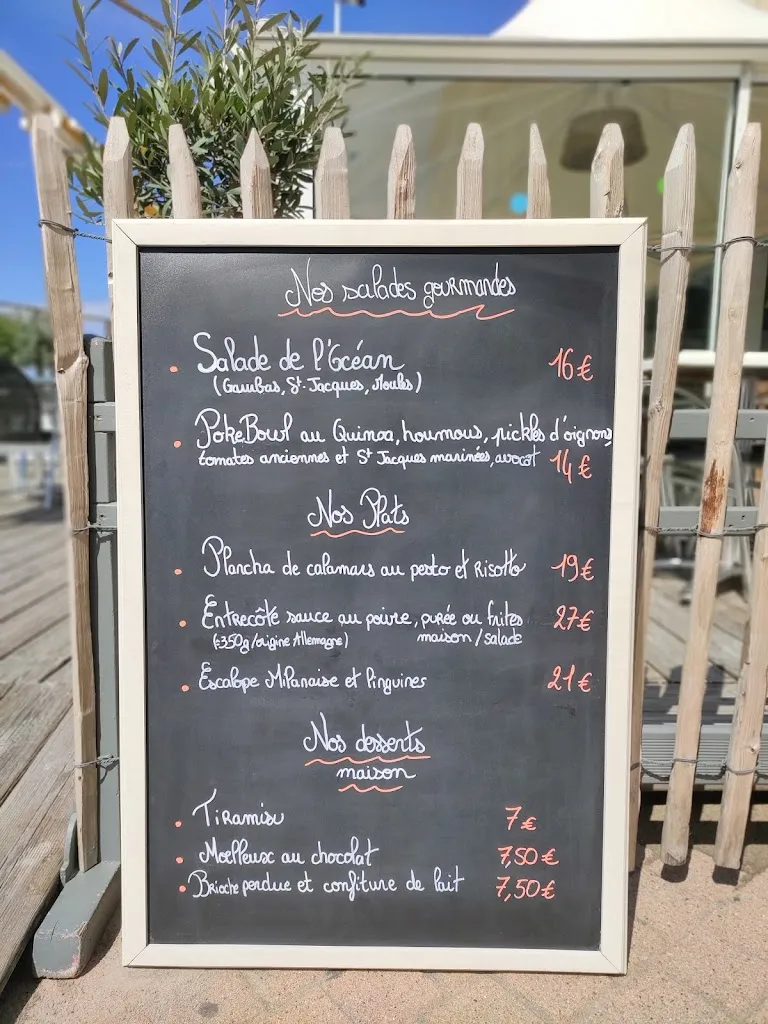 Nos salades gourmandes
Salade de l'Océan 16€
(Gambas, St-Jacques, Moules)
PokeBowl au Quinoa, houmous, pickles d'oignons,
tomates anciennes et St Jacques marinées, avocat 14€
Nos Plats
Plancha de calamars au pesto et Risotto 19€
Entrecôte sauce au poivre, purée ou frites 27€
(±350g/origine Allemagne) maison/salade
Escalope Milanaise et linguines 21€
Nos desserts
maison
Tiramisu 7€
Moelleux au chocolat 7,50€
Brioche perdue et confiture de lait 7,50€